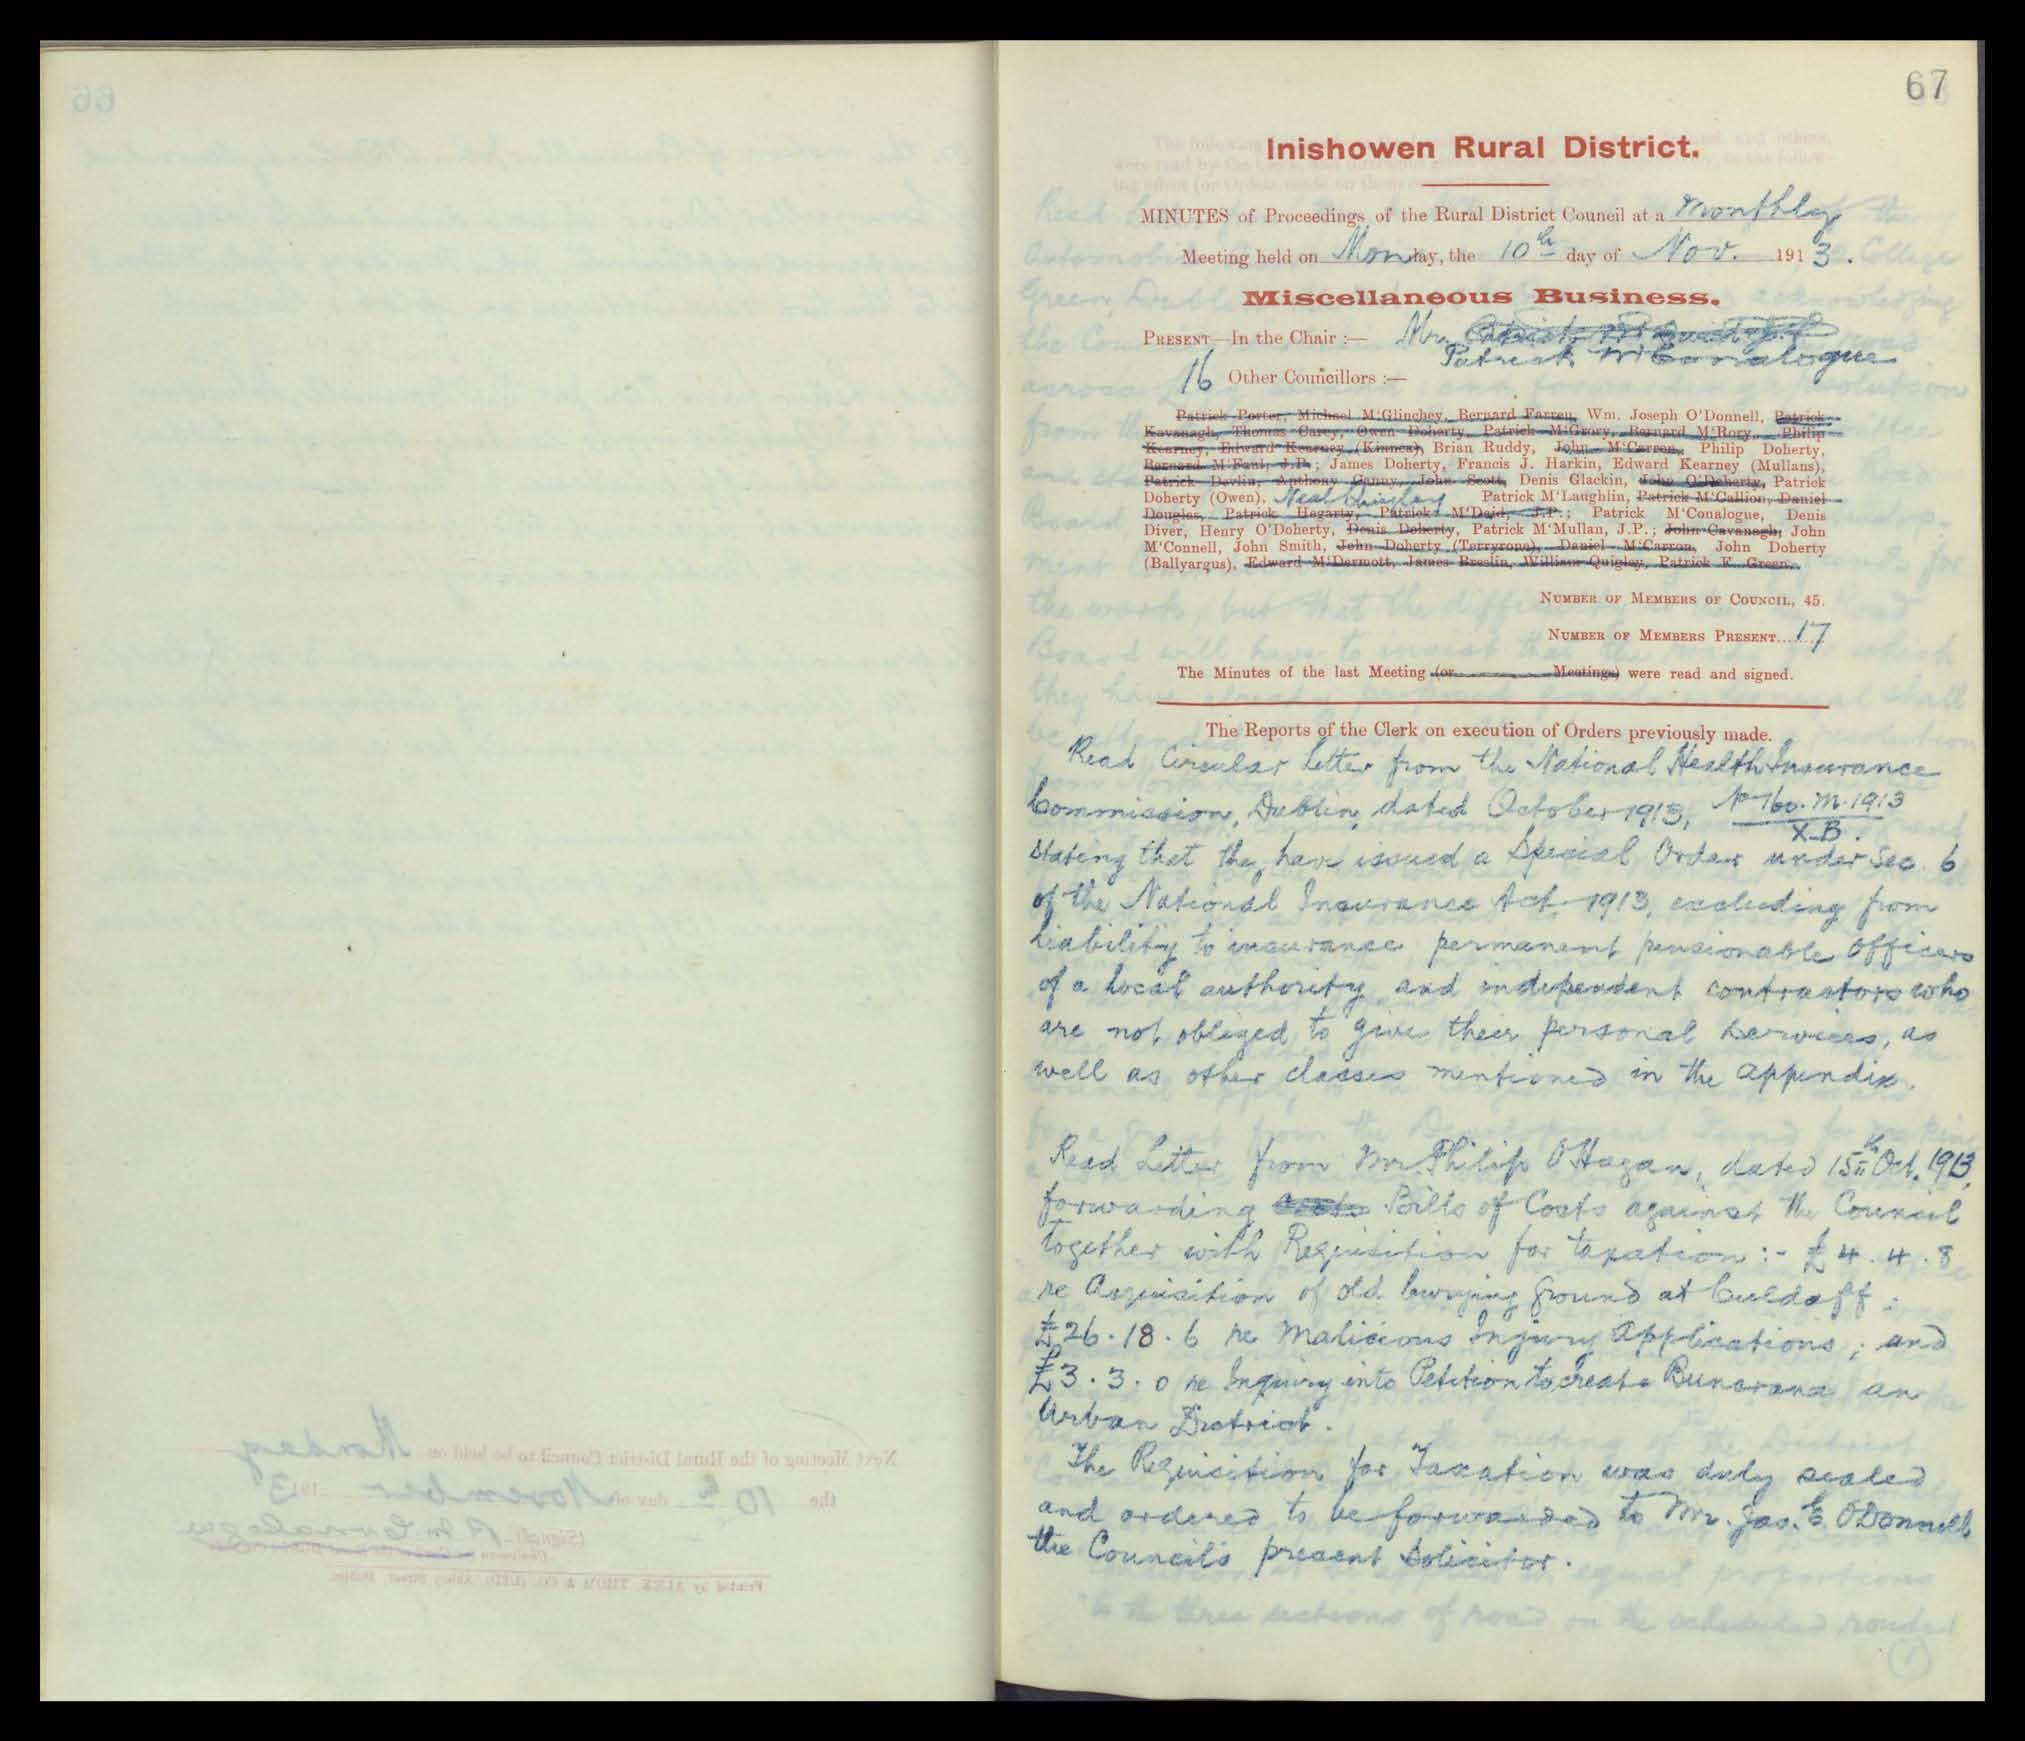 67
Inishowen Rural District.
MINUTES of Proceedings of the Rural District Council at a Monthly
Meeting held on Monday, the 10th day of Nov. 1913.
Miscellaneous Business.
PRESENT—In the Chair :— Mr.
Patrick McConalogue
16 Other Councillors :—
Patrick Porter, Michael M'Glinchey, Bernard Farren, Wm. Joseph O'Donnell, Patrick
Kavanagh, Thomas Carey, Owen Doherty, Patrick M'Grory, Bernard M'Rory, Philip
Kearney, Edward Kearney (Kinnea), Brian Ruddy, John M'Carron, Philip Doherty,
Bernard M'Faul, J.P.; James Doherty, Francis J. Harkin, Edward Kearney (Mullans),
Patrick Devlin, Anthony Canny, John Scott, Denis Glackin, John O'Doherty, Patrick
Doherty (Owen), Neal Patrick M'Laughlin, Patrick M'Callion, Daniel
Douglas, Patrick Hegarty, Patrick M'Daid, J.P.; Patrick M'Conalogue, Denis
Diver, Henry O'Doherty, Denis Doherty, Patrick M'Mullan, J.P.; John Cavanagh, John
M'Connell, John Smith, John Doherty (Terryrone), Daniel M'Carron, John Doherty
(Ballyargus), Edward M'Dermott, James Breslin, William Quigley, Patrick F. Green.
NUMBER OF MEMBERS OF COUNCIL, 45.
NUMBER OF MEMBERS PRESENT...17
The Minutes of the last Meeting (or Meetings) were read and signed.
The Reports of the Clerk on execution of Orders previously made.
Read Circular Letter from the National Health Insurance
Commission, Dublin, dated October 1913, No 760.M.1913
X.B.
stating that they have issued a Special Order under Sec. 6
of the National Insurance Act 1913, excluding from
liability to insurance permanent pensionable officers
of a local authority and independent contractors who
are not obliged to give their personal services, as
well as other classes mentioned in the appendix.
Read Letter from Mr. Philip O'Hagan, dated 15th Oct. 1913,
forwarding Costs Bills of Costs against the Council
together with Requisition for taxation :- £4.4.8
re Acquisition of old burying ground at Culdaff ;
£26.18.6 re Malicious Injury Applications ; and
£3.3.0 re Inquiry into Petition to create Buncrana an
Urban District.
The Requisition for Taxation was duly sealed
and ordered to be forwarded to Mr. Jas. E. O'Donnell
the Council's present solicitor.